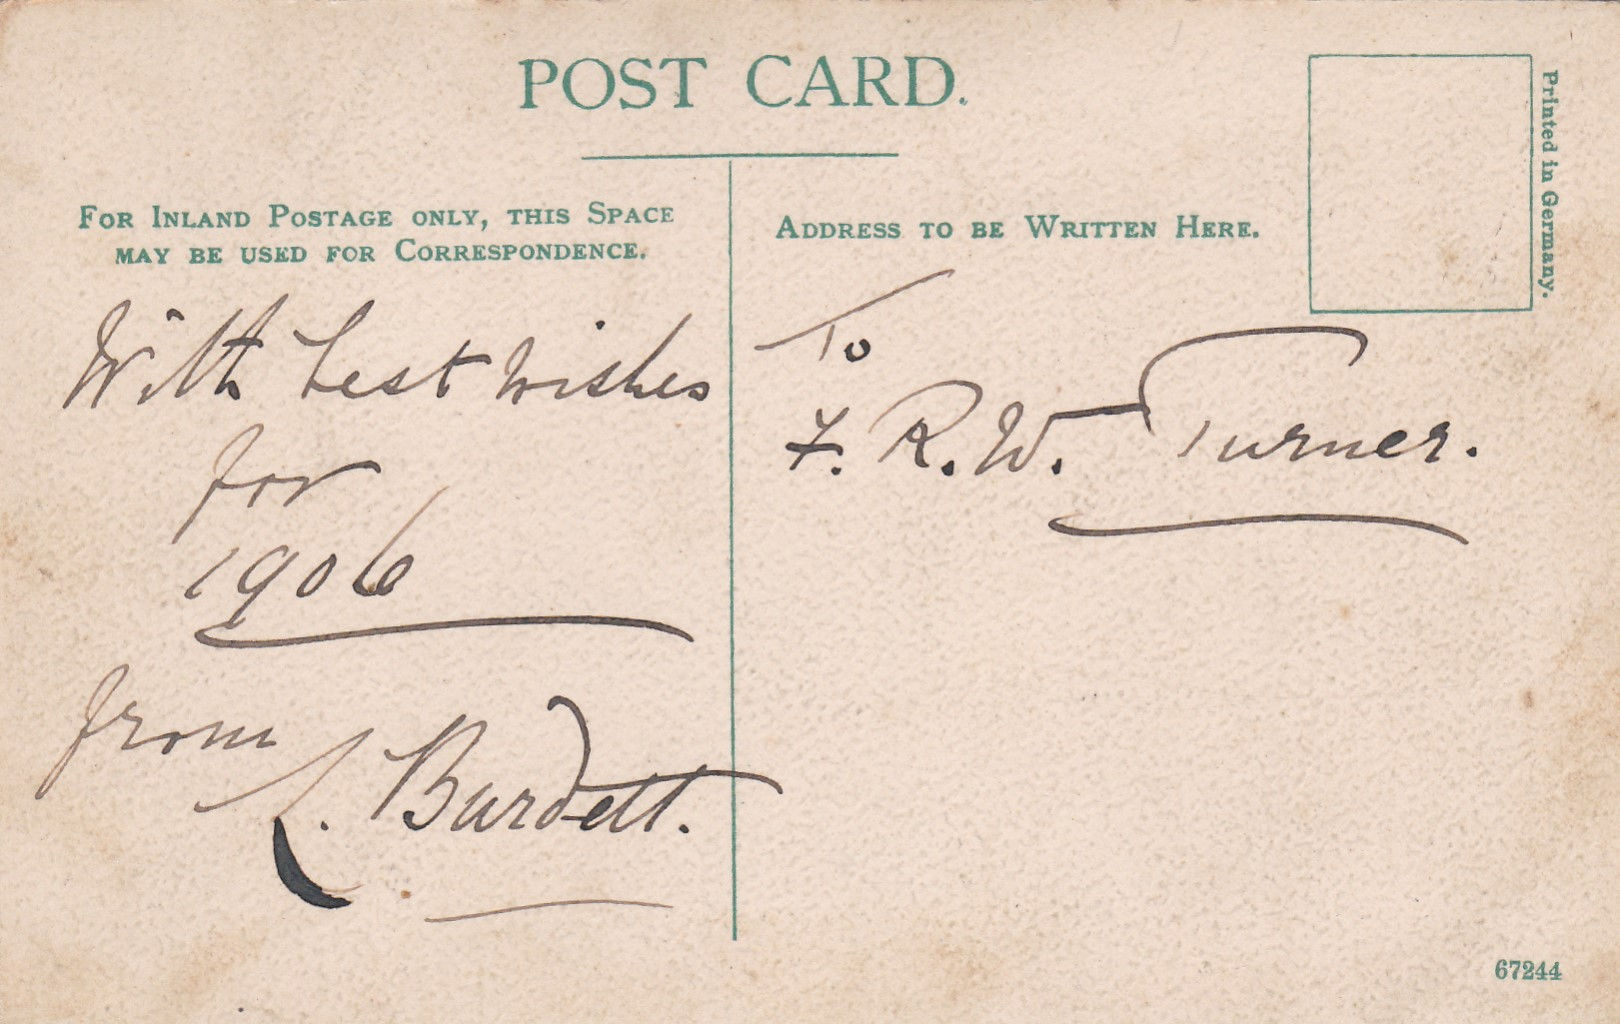 POST CARD.
Printed in Germany.
FOR INLAND POSTAGE ONLY, THIS SPACE
MAY BE USED FOR CORRESPONDENCE.
With best wishes
for
1906
from
L. Burdett.
ADDRESS TO BE WRITTEN HERE.
To
F. R. W. Turner.
67244